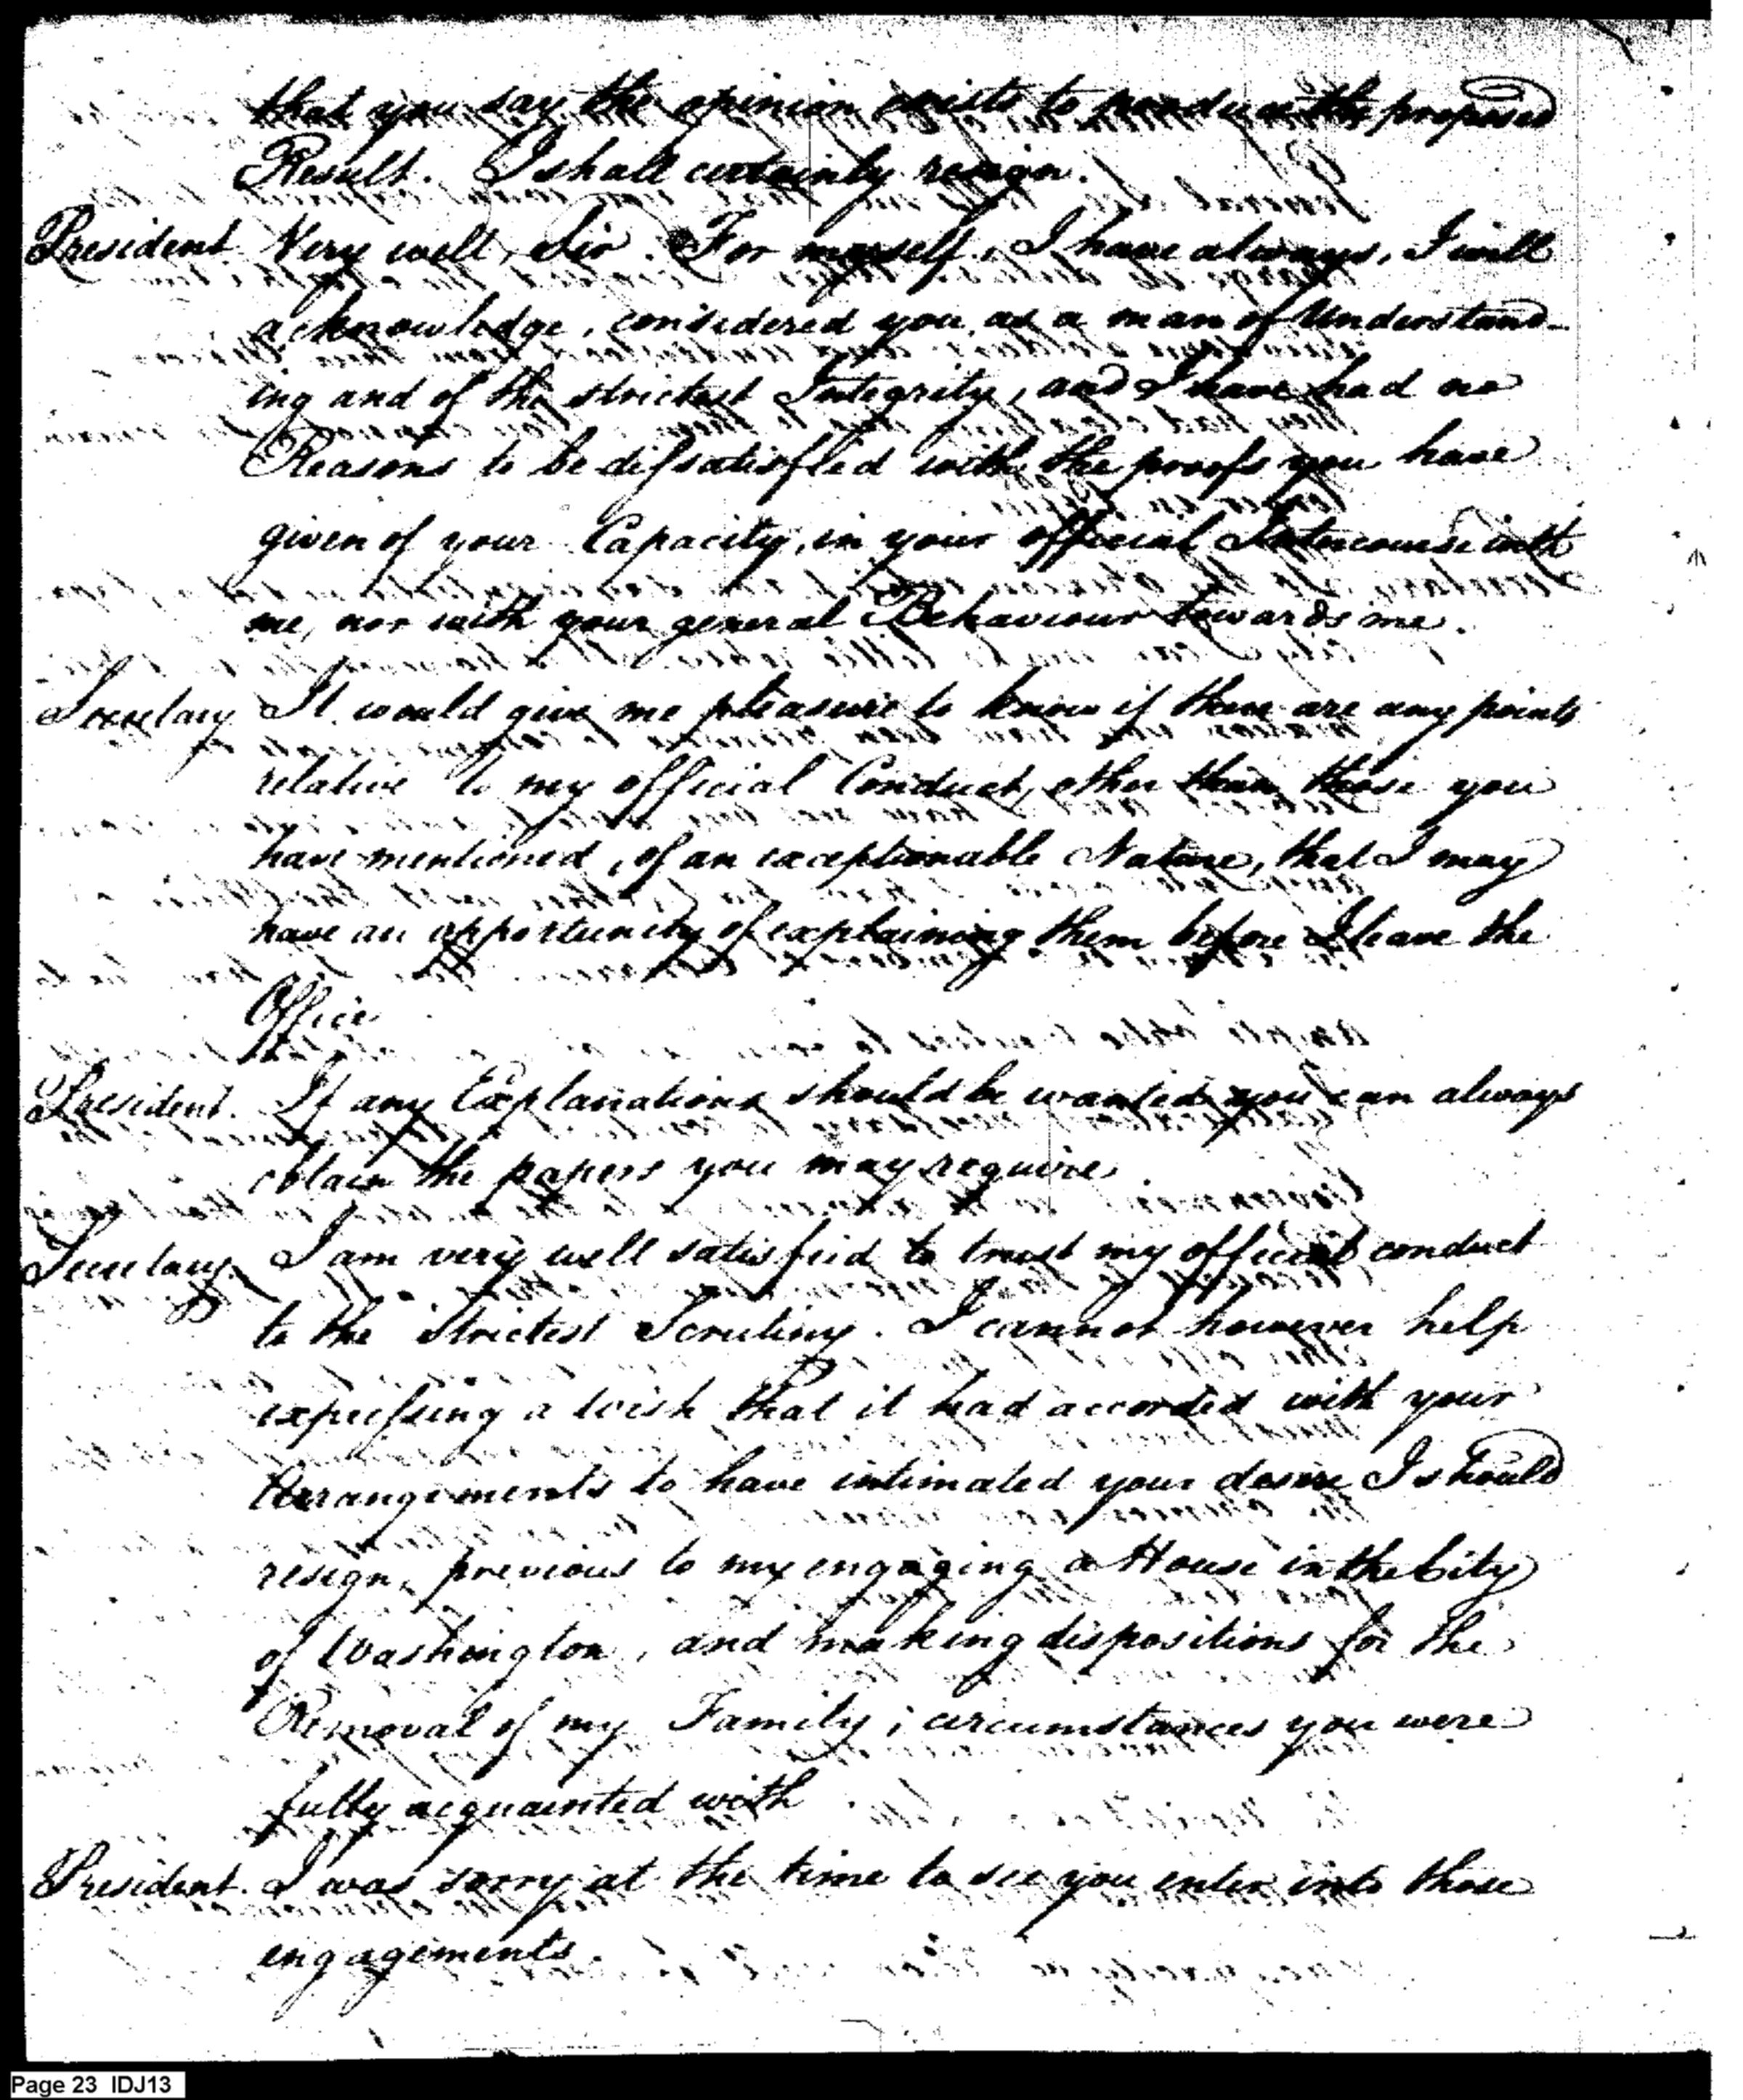 that you say the opinion exists to produce the proposed
Result. I shall certainly resign.
President. Very well, Sir. For myself, I have always, I will
acknowledge, considered you as a man of Understand-
ing and of the strictest Integrity, and I have had no
Reasons to be dissatisfied with the proofs you have
given of your Capacity, in your official Intercourse with
me, nor with your general Behaviour towards me.
Secretary It would give me pleasure to know if there are any points
relative to my official Conduct, other than those you
have mentioned, of an exceptionable Nature, that I may
have an opportunity of explaining them before I leave the
Office
President. If any Explanations should be wanted you can always
obtain the papers you may require
Secretary. I am very well satisfied to trust my official conduct
to the Strictest Scrutiny. I cannot however help
expressing a wish that it had accorded with your
Arrangements to have intimated your desire I should
resign, previous to my engaging a House in the City
of Washington, and making dispositions for the
Removal of my Family; circumstances you were
fully acquainted with
President. I was sorry at the time to see you enter into those
engagements.
Page 23 IDJ13